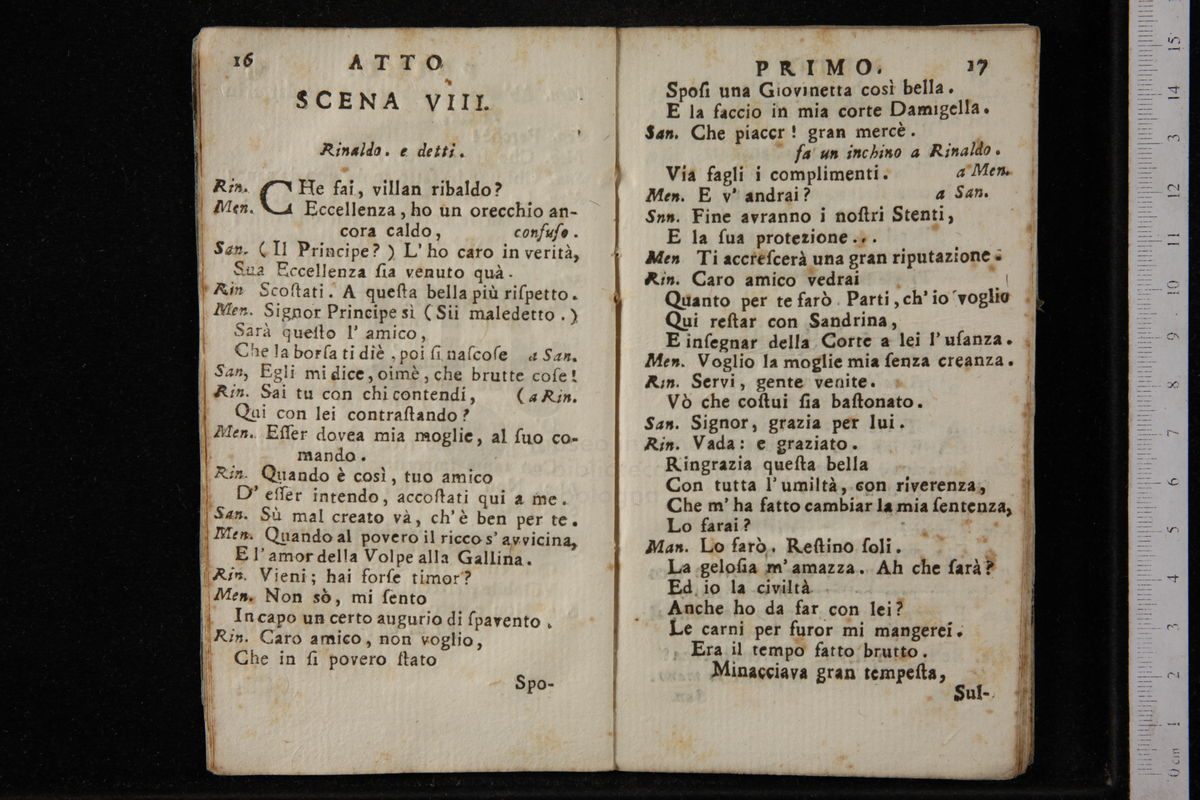 16
ATTO
SCENA VIII.
Rinaldo. e detti.
Rin. CHe fai, villan ribaldo?
Men. Eccellenza, ho un orecchio an-
cora caldo, confuso.
San. (Il Principe?) L'ho caro in verità,
Sua Eccellenza ſia venuto quà.
Rin Scoſtati. A queſta bella più riſpetto.
Men. Signor Principe sì (Sii maledetto.)
Sarà queſto l'amico,
Che la borſa ti diè, poi ſi naſcoſe a San.
San, Egli mi dice, oimè, che brutte coſe!
Rin. Sai tu con chi contendi, (a Rin.
Qui con lei contraſtando?
Men. Eſſer dovea mia moglie, al ſuo co-
mando.
Rin. Quando è così, tuo amico
D'eſſer intendo, accoſtati qui a me.
San. Sù mal creato và, ch'è ben per te.
Men. Quando al povero il ricco s'avvicina,
E l'amor della Volpe alla Gallina.
Rin. Vieni; hai forſe timor?
Men. Non sò, mi ſento
In capo un certo augurio di ſpavento.
Rin. Caro amico, non voglio,
Che in ſi povero ſtato
Spo-
PRIMO. 17
Spoſi una Giovinetta così bella.
E la faccio in mia corte Damigella.
San. Che piaccr! gran mercè.
fa un inchino a Rinaldo.
Via fagli i complimenti. a Men.
Men. E v'andrai? a San.
Snn. Fine avranno i noſtri Stenti,
E la ſua protezione...
Men Ti accreſcerà una gran riputazione.
Rin. Caro amico vedrai
Quanto per te farò. Parti, ch'io voglio
Qui reſtar con Sandrina,
E inſegnar della Corte a lei l'uſanza.
Men. Voglio la moglie mia ſenza creanza.
Rin. Servi, gente venite.
Vò che coſtui ſia baſtonato.
San. Signor, grazia per lui.
Rin. Vada: e graziato.
Ringrazia queſta bella
Con tutta l'umiltà, con riverenza,
Che m'ha fatto cambiar la mia ſentenza,
Lo farai?
Man. Lo farò. Reſtino ſoli.
La geloſia m'amazza. Ah che ſarà?
Ed io la civiltà
Anche ho da far con lei?
Le carni per furor mi mangerei.
Era il tempo fatto brutto.
Minacciava gran tempeſta,
Sul-